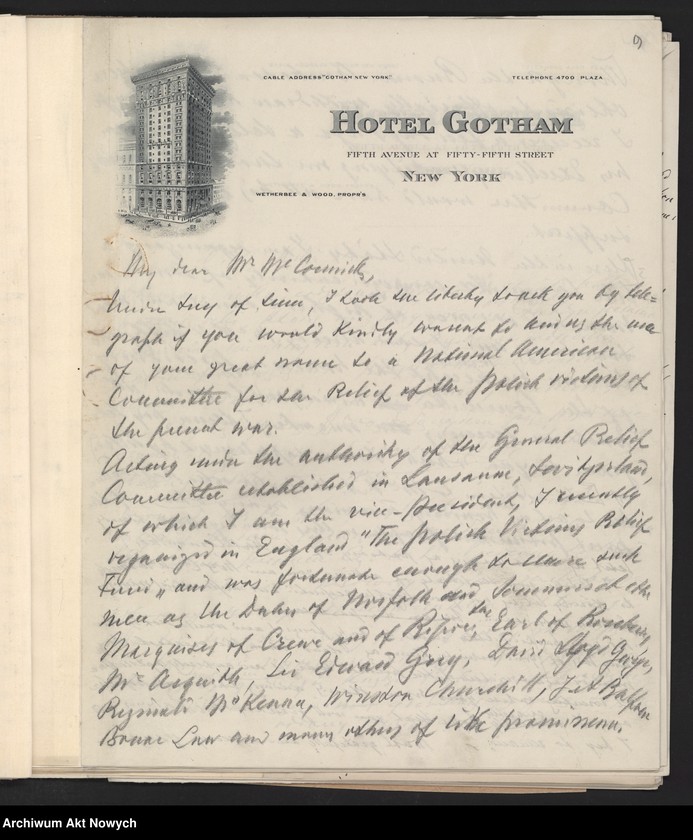 9
CABLE ADDRESS "GOTHAM NEW YORK"
TELEPHONE 4700 PLAZA
HOTEL GOTHAM
FIFTH AVENUE AT FIFTY-FIFTH STREET
NEW YORK
WETHERBEE & WOOD, PROPR'S
My dear Mr McCormick,
of time, I took the liberty to ask you by tele=
graph if you would kindly consent to the use
of your great name to a National American
Committee for the Relief of the Polish victims of
the present war.
Acting under the authority of the General Relief
Committee established in Lausanne, Switzerland,
of which I am the vice-President, I recently
organized in England "The Polish Victims Relief
Fund" and was fortunate enough to secure such
men as the Dukes of Norfolk and Somerset the
Marquises of Crewe and of Ripon, the Earl of Rosebery,
Mr Asquith, Sir Edward Grey, David Lloyd George,
Reginald McKenna, Winston Churchill, J. A Balfour
Bonar Law and many others of like prominence.
Archiwum Akt Nowych